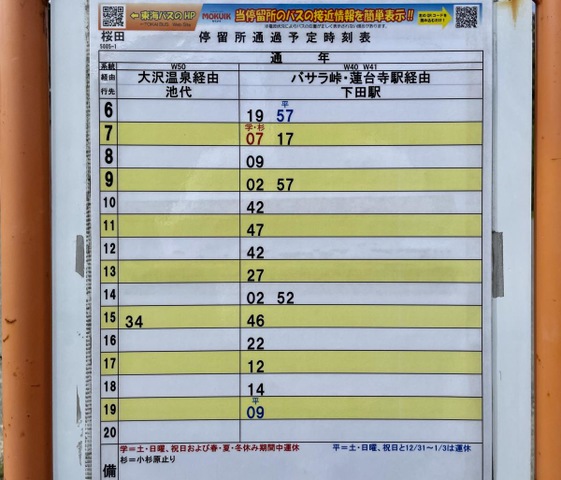 ←東海バスのHP
MOKUIK
当停留所のバスの接近情報を簡単表示!!
桜田
5005-1
停留所通過予定時刻表
通 年
系統 W50 W40 W41
経由 大沢温泉経由 バサラ峠・蓮台寺駅経由
行先 池代 下田駅
平
6 19 57
学・杉
7 07 17
8 09
9 02 57
10 42
11 47
12 42
13 27
14 02 52
15 34 46
16 22
17 12
18 14
平
19 09
20
学=土・日曜、祝日および春・夏・冬休み期間中運休 平=土・日曜、祝日と12/31~1/3は運休
杉=小杉原止り
備